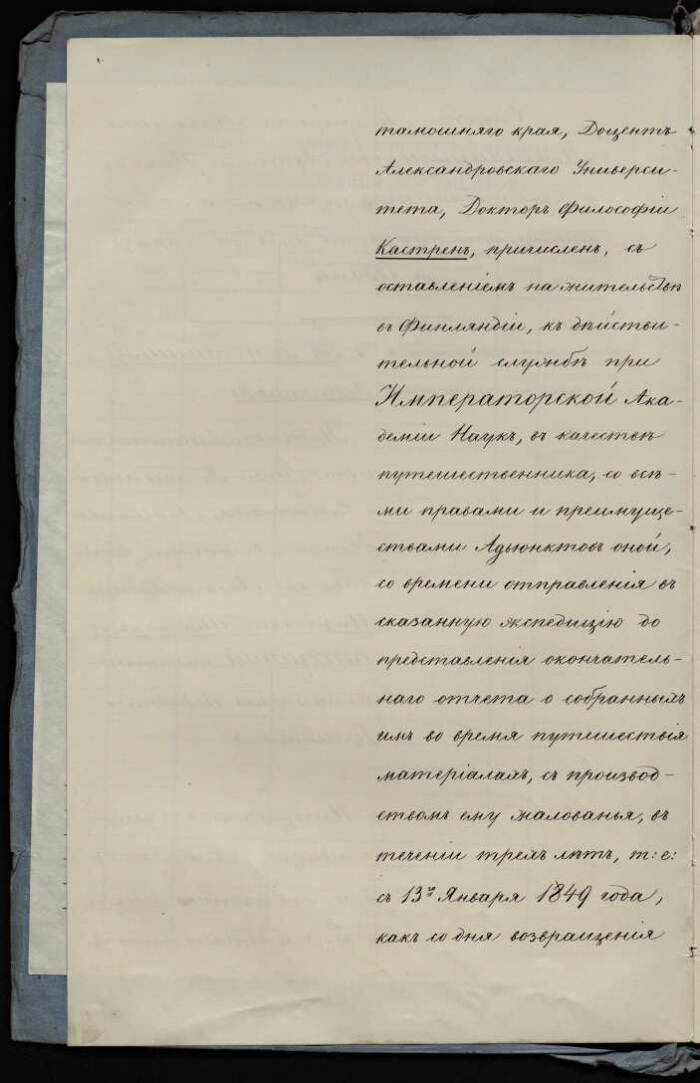 тамошняго края, Доцентъ
Александровскаго Универси-
тета, Докторъ Философіи
Кастренъ, причисленъ, съ
оставленіемъ на жительствѣ
въ Финляндіи, къ дѣйстви-
тельной службѣ при
Императорской Ака-
деміи Наукъ, въ качествѣ
путешественника, со всѣ-
ми правами и преимуще-
ствами Адъюнктовъ оной,
со времени отправленія въ
сказанную экспедицію до
представленія окончатель-
наго отчета о собранныхъ
имъ во время путешествія
матеріалахъ, съ производ-
ствомъ ему жалованья, въ
теченіи трехъ лѣтъ, т: е:
съ 13го Января 1849 года,
какъ со дня возвращенія